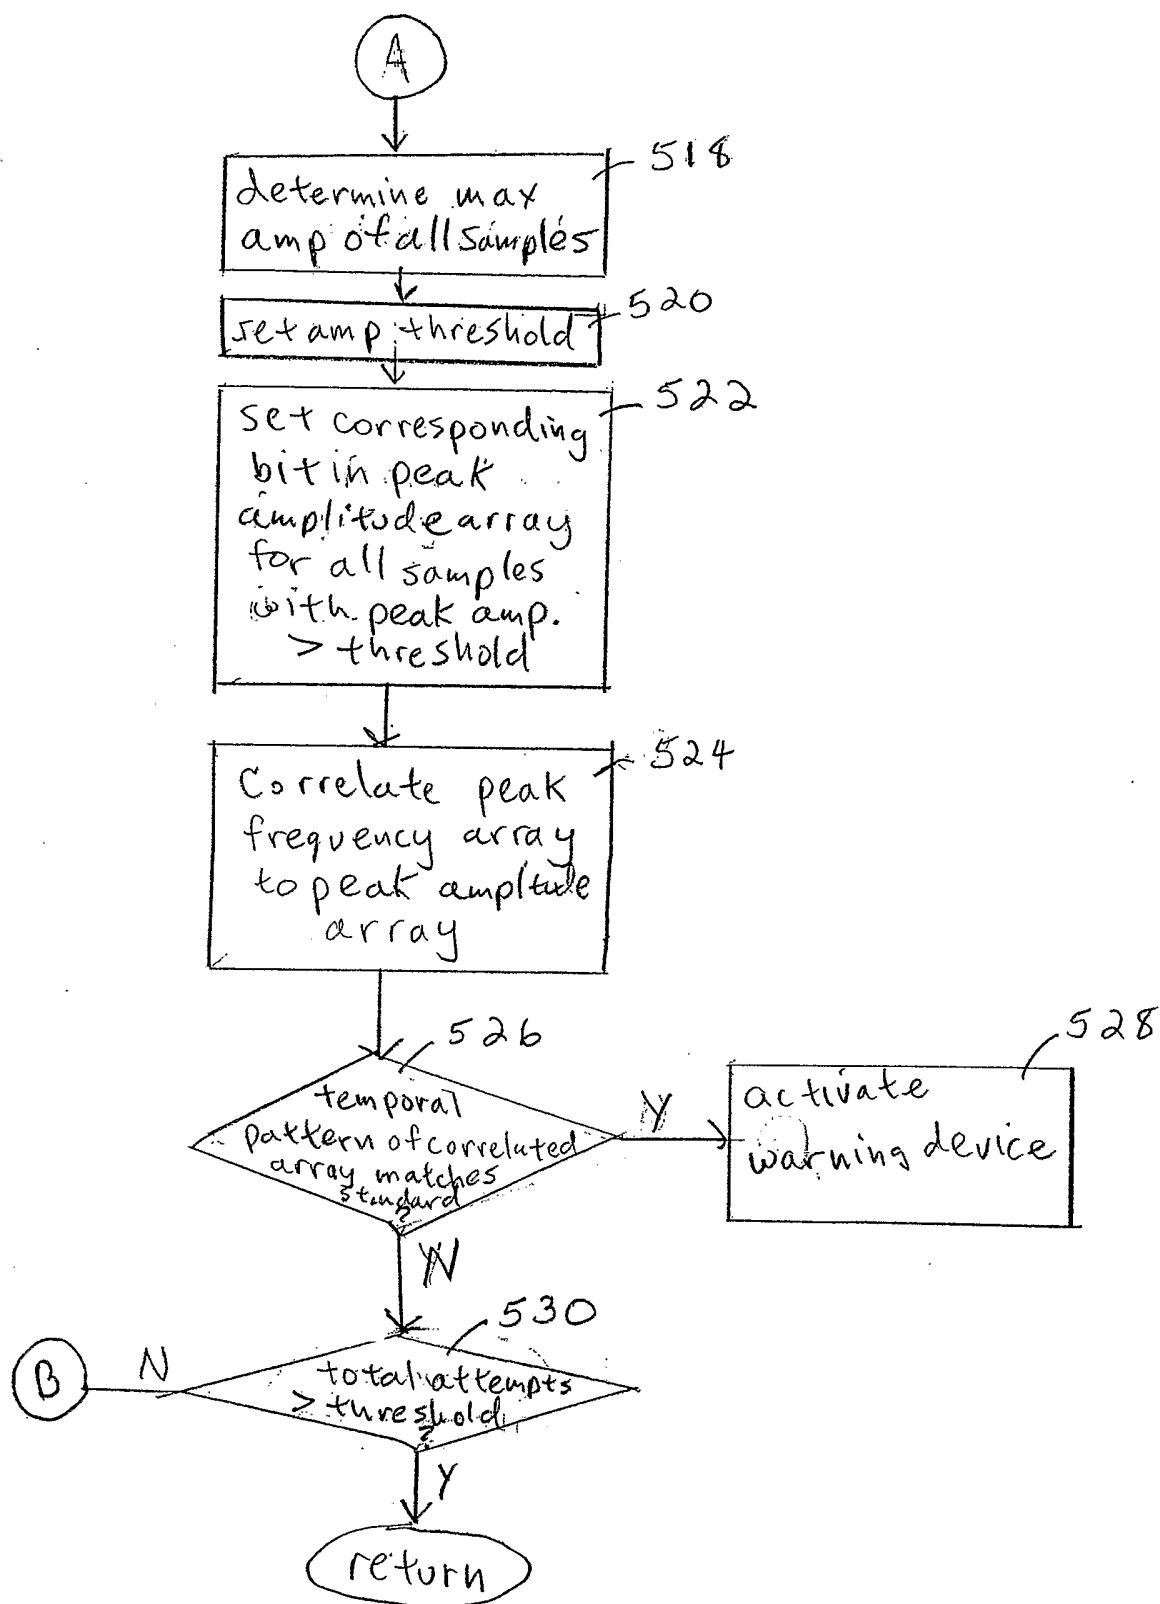 A
518
determine max
amp of all samples
520
set amp threshold
522
set corresponding
bit in peak
amplitude array
for all samples
with peak amp.
> threshold
524
Correlate peak
frequency array
to peak ampltude
array
526
temporal
pattern of correlated
array matches
standard
?
Y
528
activate
warning device
N
530
total attempts
> threshold
?
N
B
Y
return